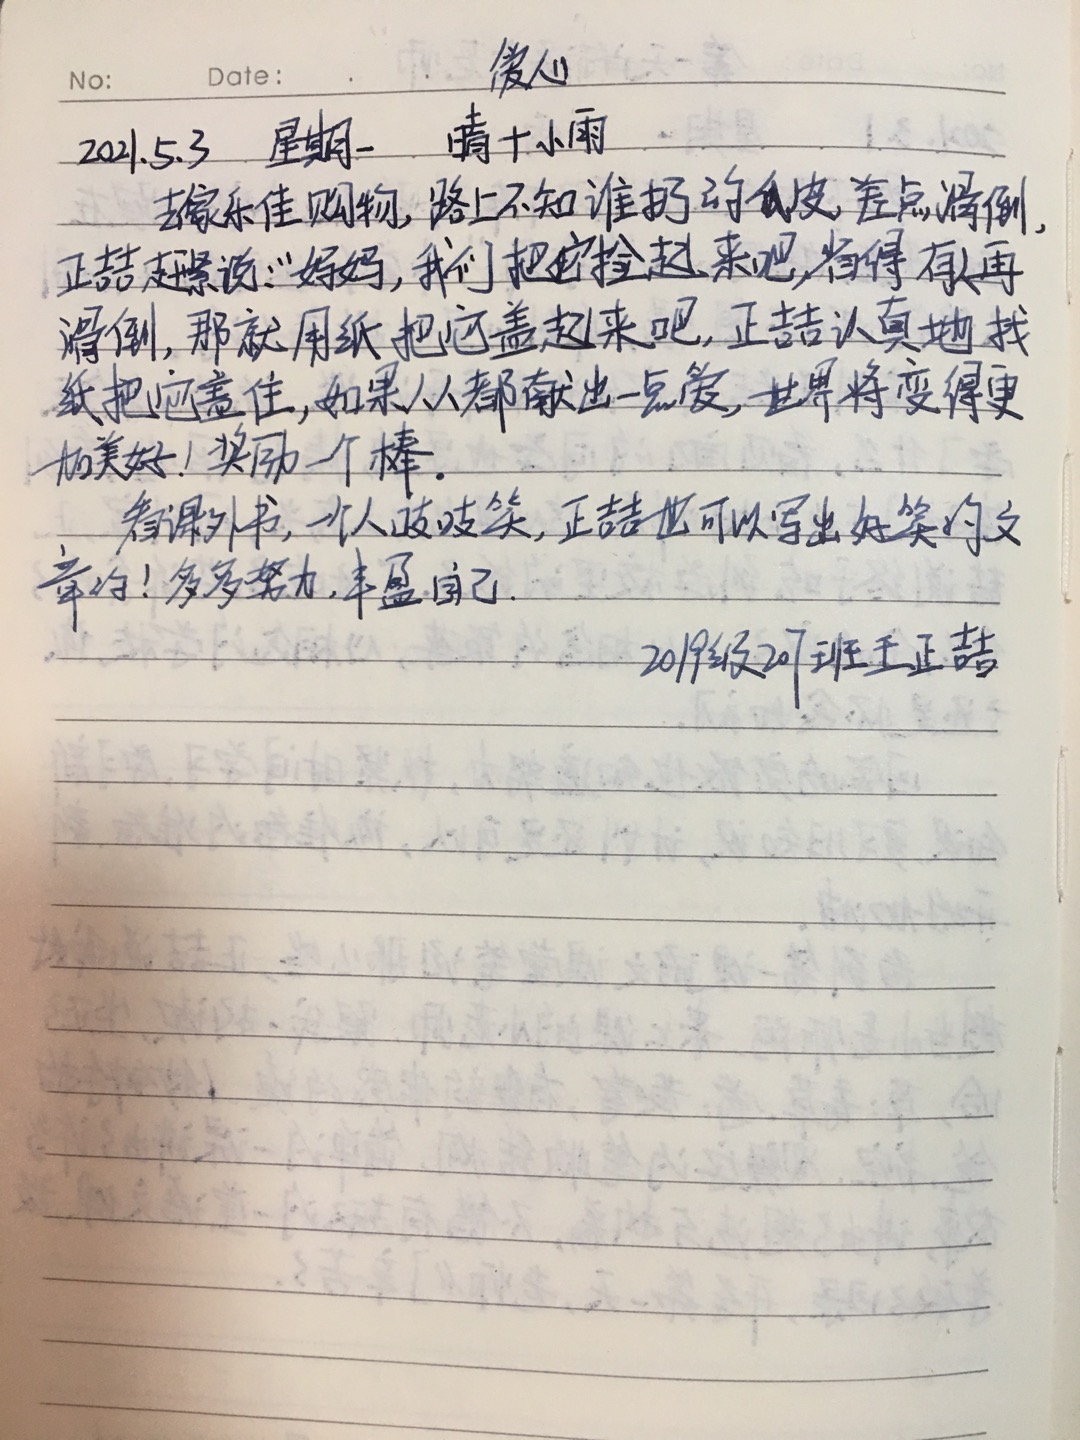 No: Date: 爱心
2021.5.3 星期一 晴十小雨
去家乐佳购物,路上不知谁扔的瓜皮,差点滑倒,
正喆赶紧说:"妈妈,我们把它捡起来吧,省得有人再
滑倒,那就用纸把它盖起来吧,正喆认真地找
纸把它盖住,如果人人都献出一点爱,世界将变得更
加美好!奖励一个棒.
看课外书,一个人吱吱笑,正喆也可以写出好笑的文
章的!多多努力,丰盈自己.
2019级207班王正喆